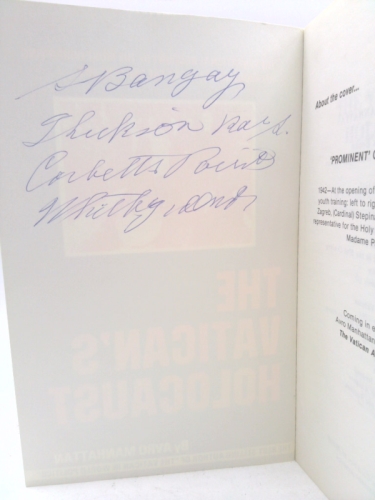 S Bangay
Thickson Road.
Corbetts Point
Whitby, Ont,
About the cover...
'PROMINENT'
1942—At the opening of
youth training: left to
Zagreb, (Cardinal)
representative for the Holy
Madame
Coming in
Avro Manhattan
The Vatican
THE
VATICAN'S
HOLOCAUST
By AVRO MANHATTAN